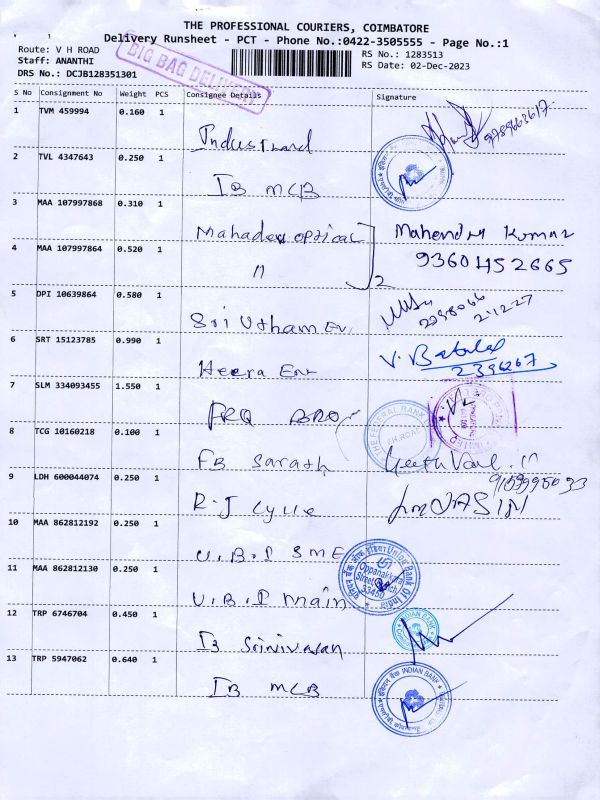 THE PROFESSIONAL COURIERS, COIMBATORE
Delivery Runsheet - PCT - Phone No.:0422-3505555 - Page No.:1
Route: V H ROAD
RS No.: 1283513
Staff: ANANTHI
RS Date: 02-Dec-2023
DRS No.: DCJB128351301
BIG BAG DELIVERY
S No Consignment No Weight PCS Consignee Details Signature
1 TVM 459994 0.160 1
2 TVL 4347643 0.250 1 IB MCB
3 MAA 107997868 0.310 1 Mahadev optical Mahendra Kumar
4 MAA 107997864 0.520 1 11 2 9360452665
5 DPI 10639864 0.580 1 Sri Utham En
6 SRT 15123785 0.990 1 Heera Ent 2396267
7 SLM 334093455 1.550 1 THE FEDERAL BANK
8 TCG 10160218 0.100 1 FB Sarath
9 LDH 600044074 0.250 1 R.J
10 MAA 862812192 0.250 1 U.B.I SME
11 MAA 862812130 0.250 1 U.B.I main Union Bank Of India
12 TRP 6746704 0.450 1 IB Srinivasan INDIAN BANK
13 TRP 5947062 0.640 1 IB MCB इंडियन बैंक INDIAN BANK